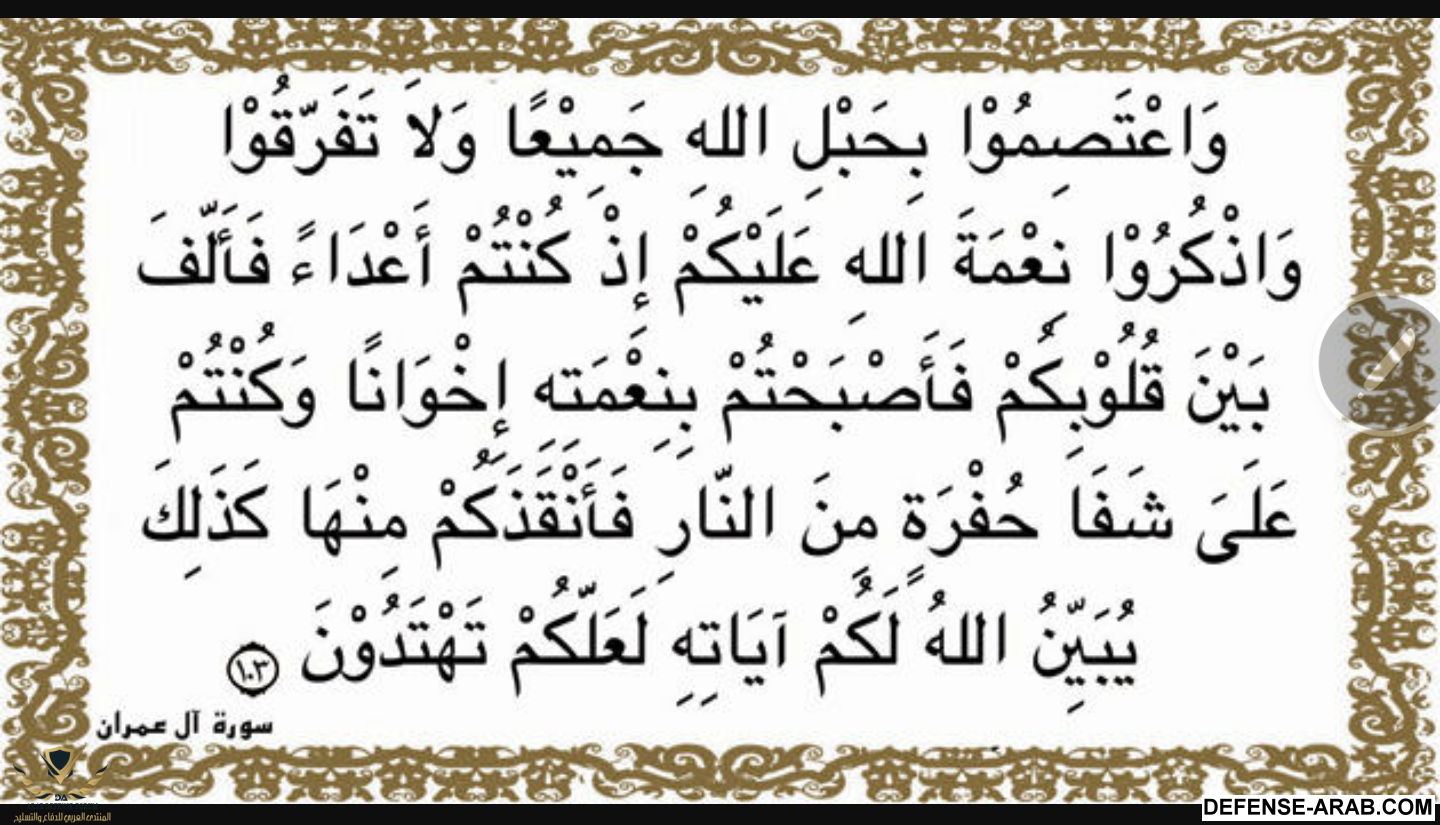 وَاعْتَصِمُوْا بِحَبْلِ اللهِ جَمِيْعًا وَلاَ تَفَرَّقُوْا
وَاذْكُرُوْا نِعْمَةَ اللهِ عَلَيْكُمْ إِذْ كُنْتُمْ أَعْدَاءً فَأَلَّفَ
بَيْنَ قُلُوْبِكُمْ فَأَصْبَحْتُمْ بِنِعْمَتِه إِخْوَانًا وَكُنْتُمْ
عَلَىَ شَفَا حُفْرَةٍ مِنَ النَّارِ فَأَنْقَذَكُمْ مِنْهَا كَذَلِكَ
يُبَيِّنُ اللهُ لَكُمْ آيَاتِهِ لَعَلَّكُمْ تَهْتَدُوْنَ ١٠٣
سورة آل عمران
DA
المنتدى العربي للدفاع والتسليح
DEFENSE-ARAB.COM